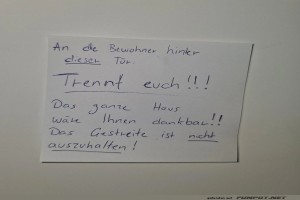 An die Bewohner hinter
dieser Tür:
Trennt euch!!!
Das ganze Haus
wäre Ihnen dankbar!!
Das Gestreite ist nicht
auszuhalten!